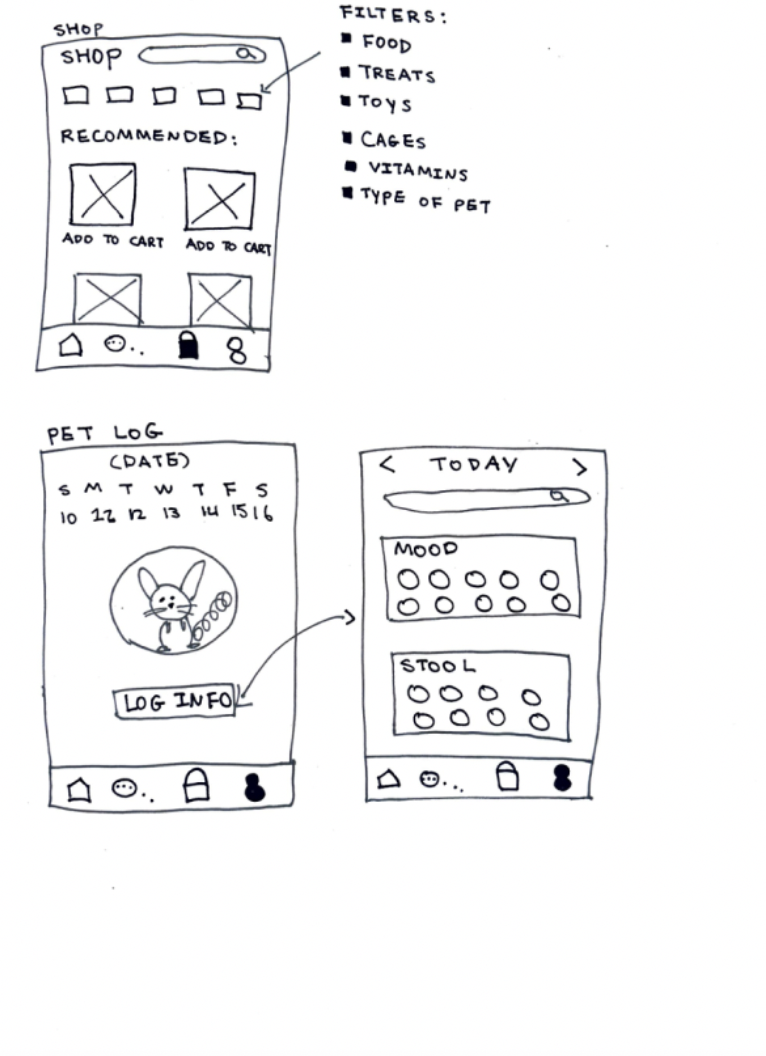 SHOP
SHOP
RECOMMENDED:
ADD TO CART ADD TO CART
FILTERS:
FOOD
TREATS
TOYS
CAGES
VITAMINS
TYPE OF PET
PET LOG
(DATE)
S M T W T F S
10 12 12 13 14 15 16
LOG INFO
< TODAY >
MOOD
STOOL